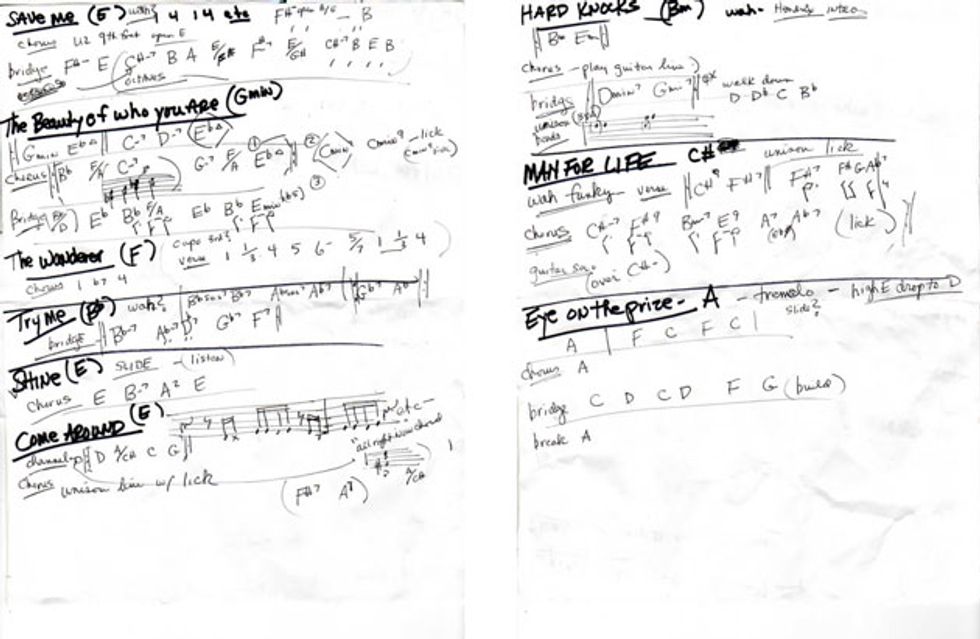 SAVE ME (E) 1 4 1 4 etc F#- open B/E _ B
chorus U2 9th open E
bridge F#- E (C#-7 B A E/G# F#-7 E/G# C#-7 B E B
octaves
The Beauty of who you are (Gmin)
Gmin EbΔ C-7 D-7 (EbΔ)
chorus Bb F/A C-7 G-7 F/A EbΔ ① ② (Cmin7) Cmin9 - lick
③
Bridge (Bb/D) Eb Bb F/A Eb Bb Emin7(b5)
The Wanderer (F) (capo 3rd?
verse 1 1/3 4 5 6- 5/7 1 1/3 4)
chorus 1 b7 4
Try me (Bb) wah? Bb7 Ab7 Gb7 Ab7
bridge Bb-7 Ab7 Gb7 F7
SHINE (E) SLIDE - (listen)
Chorus E B-7 A2 E
Come Around (E) etc-
"all right now chord
D A/C# C G A/C#
Chorus unison line w/ lick
(F#7 A7)
HARD KNOCKS (Bm) wah- Hendrix intro
Bm Em
chorus - play guitar line)
bridge Dmin7 Gm7 4x walk down
D Db C Bb
unison bends
MAN FOR LIFE C# unison lick
wah funky verse C#9 F#7 F#7 F# G Ab7
chorus C#-7 F#9 Bm7 E9 A7 Ab7 (lick)
guitar solo
(over C#-)
Eye on the prize - A - tremolo - high E drop to D
slide?
A F C F C
chorus A
bridge C D C D F G (build)
break A